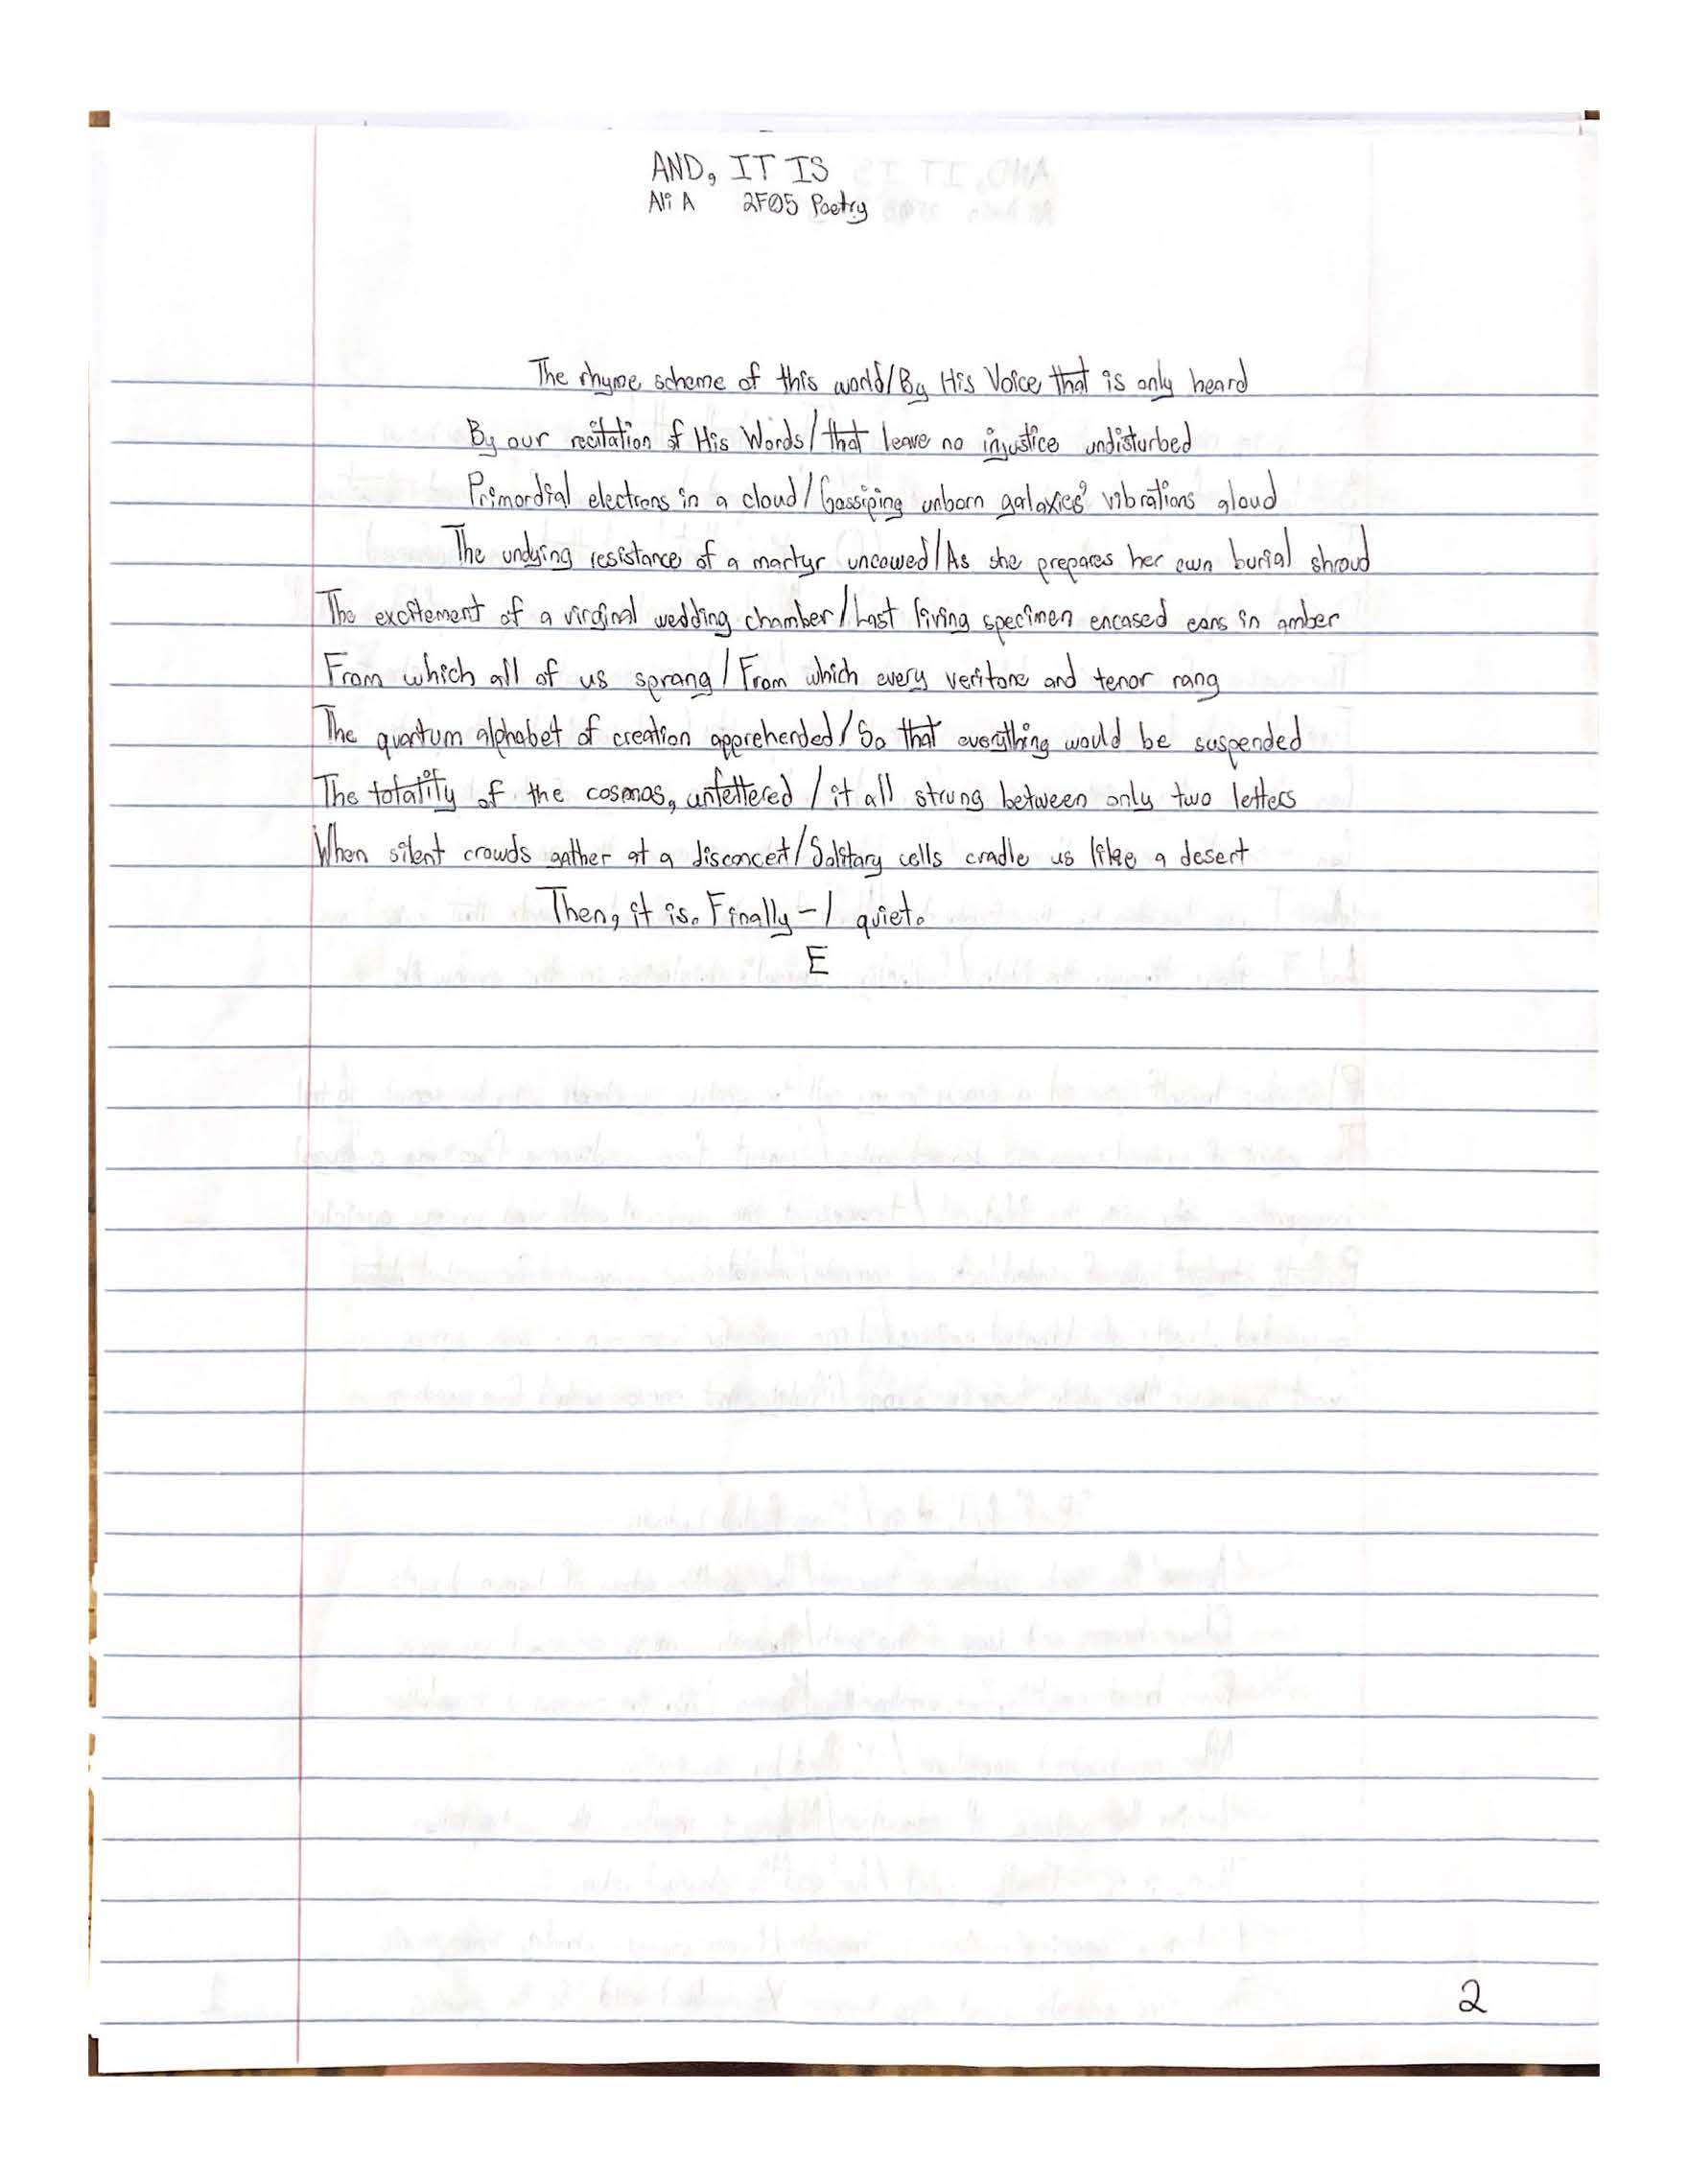 AND, IT IS
Ali A 2F05 Poetry
The rhyme scheme of this world/By His Voice that is only heard
By our recitation of His Words/that leave no injustice undisturbed
Primordial electrons in a cloud/Gossiping unborn galaxies' vibrations aloud
The undying resistance of a martyr uncowed/As she prepares her own burial shroud
The excitement of a virginal wedding chamber/Last living specimen encased eons in amber
From which all of us sprang/From which every veritone and tenor rang
The quantum alphabet of creation apprehended/So that everything would be suspended
The totality of the cosmos, unfettered/it all strung between only two letters
When silent crowds gather at a disconcert/Solitary cells cradle us like a desert
Then, it is. Finally-/quiet.
E
2